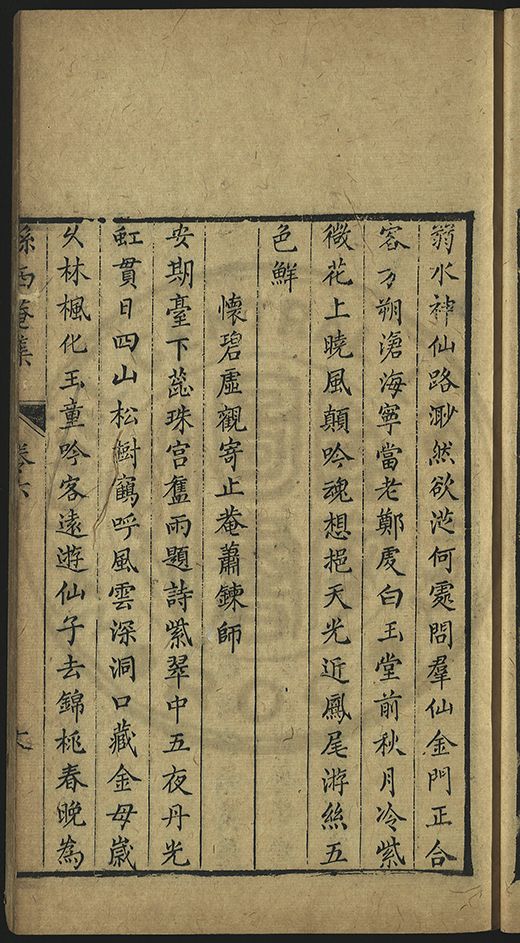 弱水神仙路渺然欲從何處問羣仙金門正合
客方朔滄海寧當老鄭虔白玉堂前秋月冷紫
微花上曉風顛吟魂想挹天光近鳳尾游絲五
色鮮
懷碧虛觀寄止菴蕭鍊師
安期臺下蕊珠宮舊雨題詩紫翠中五夜丹光
虹貫日四山松樹鶴呼風雲深洞口藏金母歲
久林楓化玉童吟客遠遊仙子去錦桃春晚為
孫西菴集
卷六